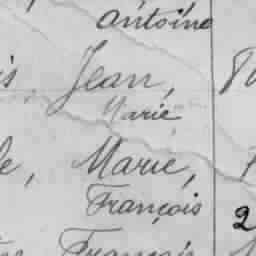 Antoine
Jean,
Marie
Marie,
François
2
François